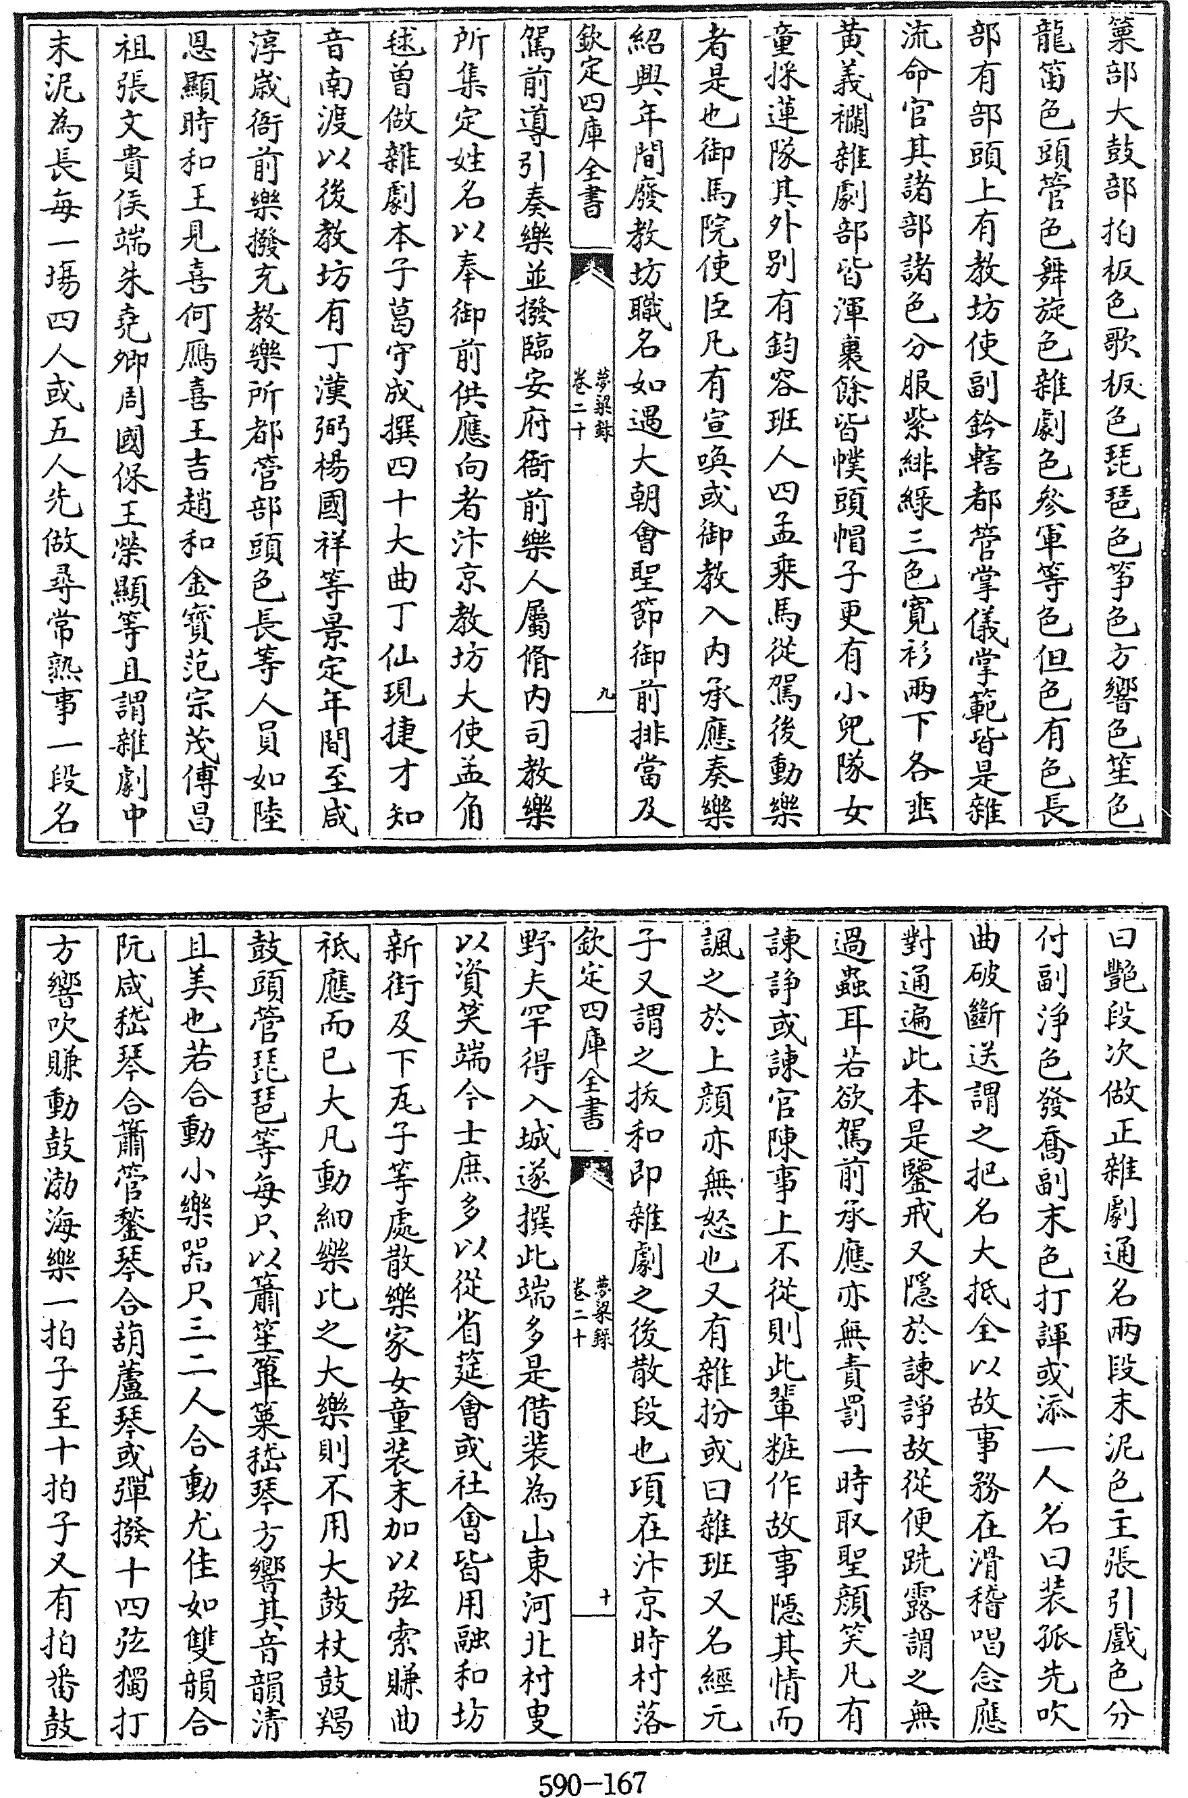 篥部大鼓部拍板色歌板色琵琶色筝色方響色笙色
龍笛色頭管色舞旋色雜劇色參軍等色但色有色長
部有部頭上有教坊使副鈐轄都管掌儀掌範皆是雜
流命官其諸部諸色分服紫緋綠三色寬衫兩下各垂
黄義襴雜劇部皆渾裹餘皆幞頭帽子更有小兒隊女
童採蓮隊其外别有鈞容班人四孟乘馬從駕後動樂
者是也御馬院使臣凡有宣喚或御教入内承應奏樂
紹興年間廢教坊職名如遇大朝會聖節御前排當及
欽定四庫全書
夢粱錄
卷二十
九
駕前導引奏樂並撥臨安府衙前樂人屬脩内司教樂
所集定姓名以奉御前供應向者汴京教坊大使孟角
毬曾做雜劇本子葛守成撰四十大曲丁仙現捷才知
音南渡以後教坊有丁漢弼楊國祥等景定年間至咸
淳嵗衙前樂撥充教樂所都管部頭色長等人員如陸
恩顯時和王見喜何鴈喜王吉趙和金寳范宗茂傅昌
祖張文貴侯端朱堯卿周國保王榮顯等且謂雜劇中
末泥為長每一塲四人或五人先做尋常熟事一段名
曰艶段次做正雜劇通名兩段末泥色主張引戲色分
付副淨色發喬副末色打諢或添一人名曰装孤先吹
曲破斷送謂之把名大抵全以故事務在滑稽唱念應
對通遍此本是鑒戒又隱於諫諍故從便跣露謂之無
過蟲耳若欲駕前承應亦無責罰一時取聖顔笑凡有
諫諍或諫官陳事上不從則此輩粧作故事隱其情而
諷之於上顔亦無怒也又有雜扮或曰雜班又名經元
子又謂之拔和即雜劇之後散段也項在汴京時村落
欽定四庫全書
夢粱錄
卷二十
十
野夫罕得入城遂撰此端多是借装為山東河北村叟
以資笑端今士庶多以從省筵會或社會皆用融和坊
新街及下瓦子等處散樂家女童装末加以弦索賺曲
祗應而已大凡動細樂比之大樂則不用大鼓杖鼓羯
鼓頭管琵琶等每只以簫笙篳篥嵇琴方響其音韻清
且美也若合動小樂器只三二人合動尤佳如雙韻合
阮咸嵇琴合簫管鍫琴合葫蘆琴或彈撥十四弦獨打
方響吹賺動鼓渤海樂一拍子至十拍子又有拍番鼓
590-167